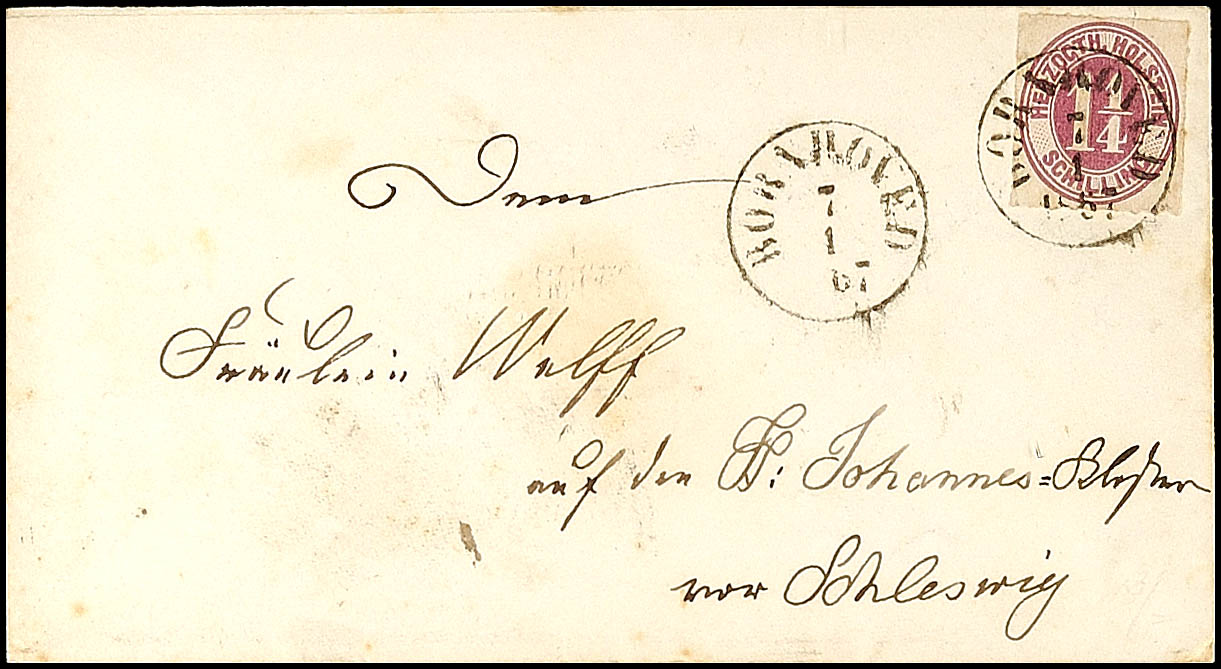 HERZOGTH. HOLSTEIN
1 1/4
SCHILLING
BORNHOVED
7
1
1867
BORNHOVED
7
1
67
Dem
Fräulein Welff
auf den St: Johannes=Kloster
vor Schleswig